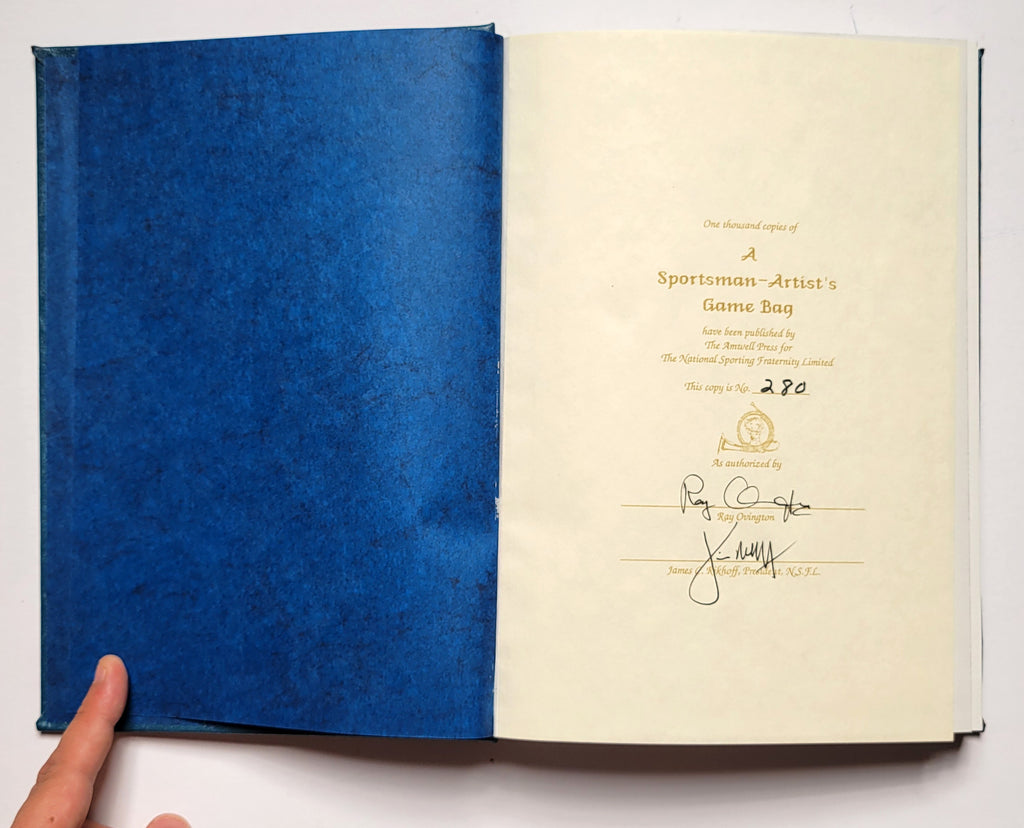 One thousand copies of
A
Sportsman-Artist's
Game Bag
have been published by
The Amwell Press for
The National Sporting Fraternity Limited
This copy is No. 280
As authorized by
Ray Ovington
Ray Ovington
James C. Rikhoff, President, N.S.F.L.